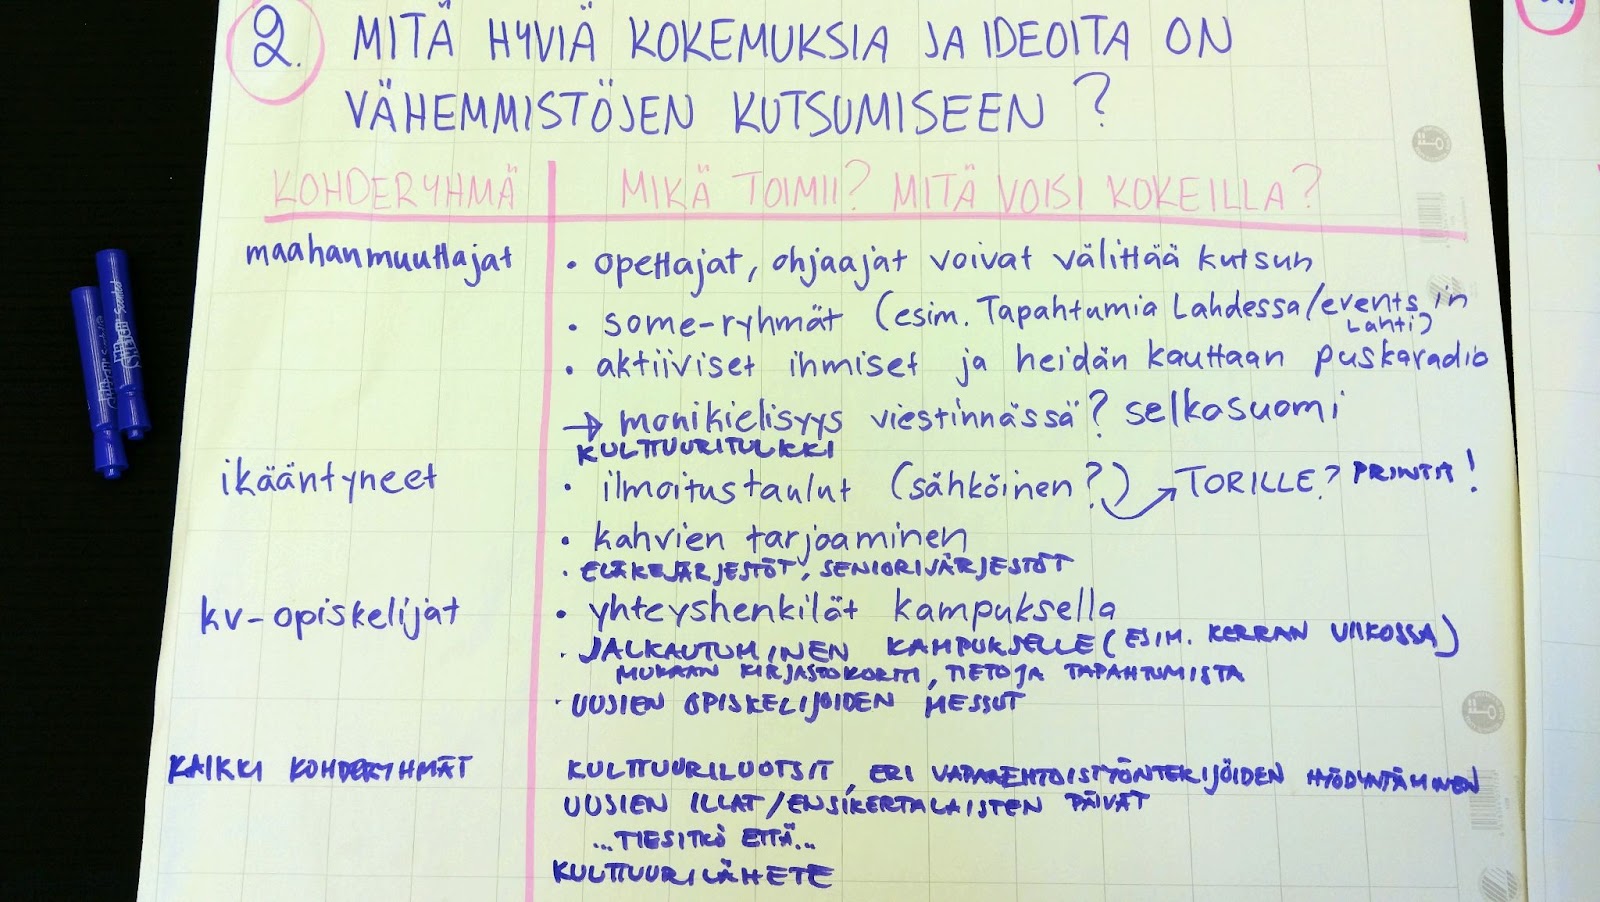 2. MITÄ HYVIÄ KOKEMUKSIA JA IDEOITA ON
VÄHEMMISTÖJEN KUTSUMISEEN?
KOHDERYHMÄ MIKÄ TOIMII? MITÄ VOISI KOKEILLA?
maahanmuuttajat • opettajat, ohjaajat voivat välittää kutsun
• some-ryhmät (esim. Tapahtumia Lahdessa/events in
Lahti)
• aktiiviset ihmiset ja heidän kauttaan puskaradio
→ monikielisyys viestinnässä? selkosuomi
KULTTUURITULKKI
ikääntyneet • ilmoitustaulut (sähköinen?) → TORILLE? PRINTA!
• kahvien tarjoaminen
• ELÄKEJÄRJESTÖT, SENIORIJÄRJESTÖT
kv-opiskelijat • yhteyshenkilöt kampuksella
• JALKAUTUMINEN KAMPUKSELLE (ESIM. KERRAN VIIKOSSA)
MUKAAN KIRJASTOKORTTI, TIETOJA TAPAHTUMISTA
• UUSIEN OPISKELIJOIDEN MESSUT
KAIKKI KOHDERYHMÄT KULTTUURILUOTSIT, ERI VAPAAEHTOISTYÖNTEKIJÖIDEN HYÖDYNTÄMINEN
UUSIEN ILLAT/ENSIKERTALAISTEN PÄIVÄT
...TIESITKÖ ETTÄ...
KULTTUURILÄHETE